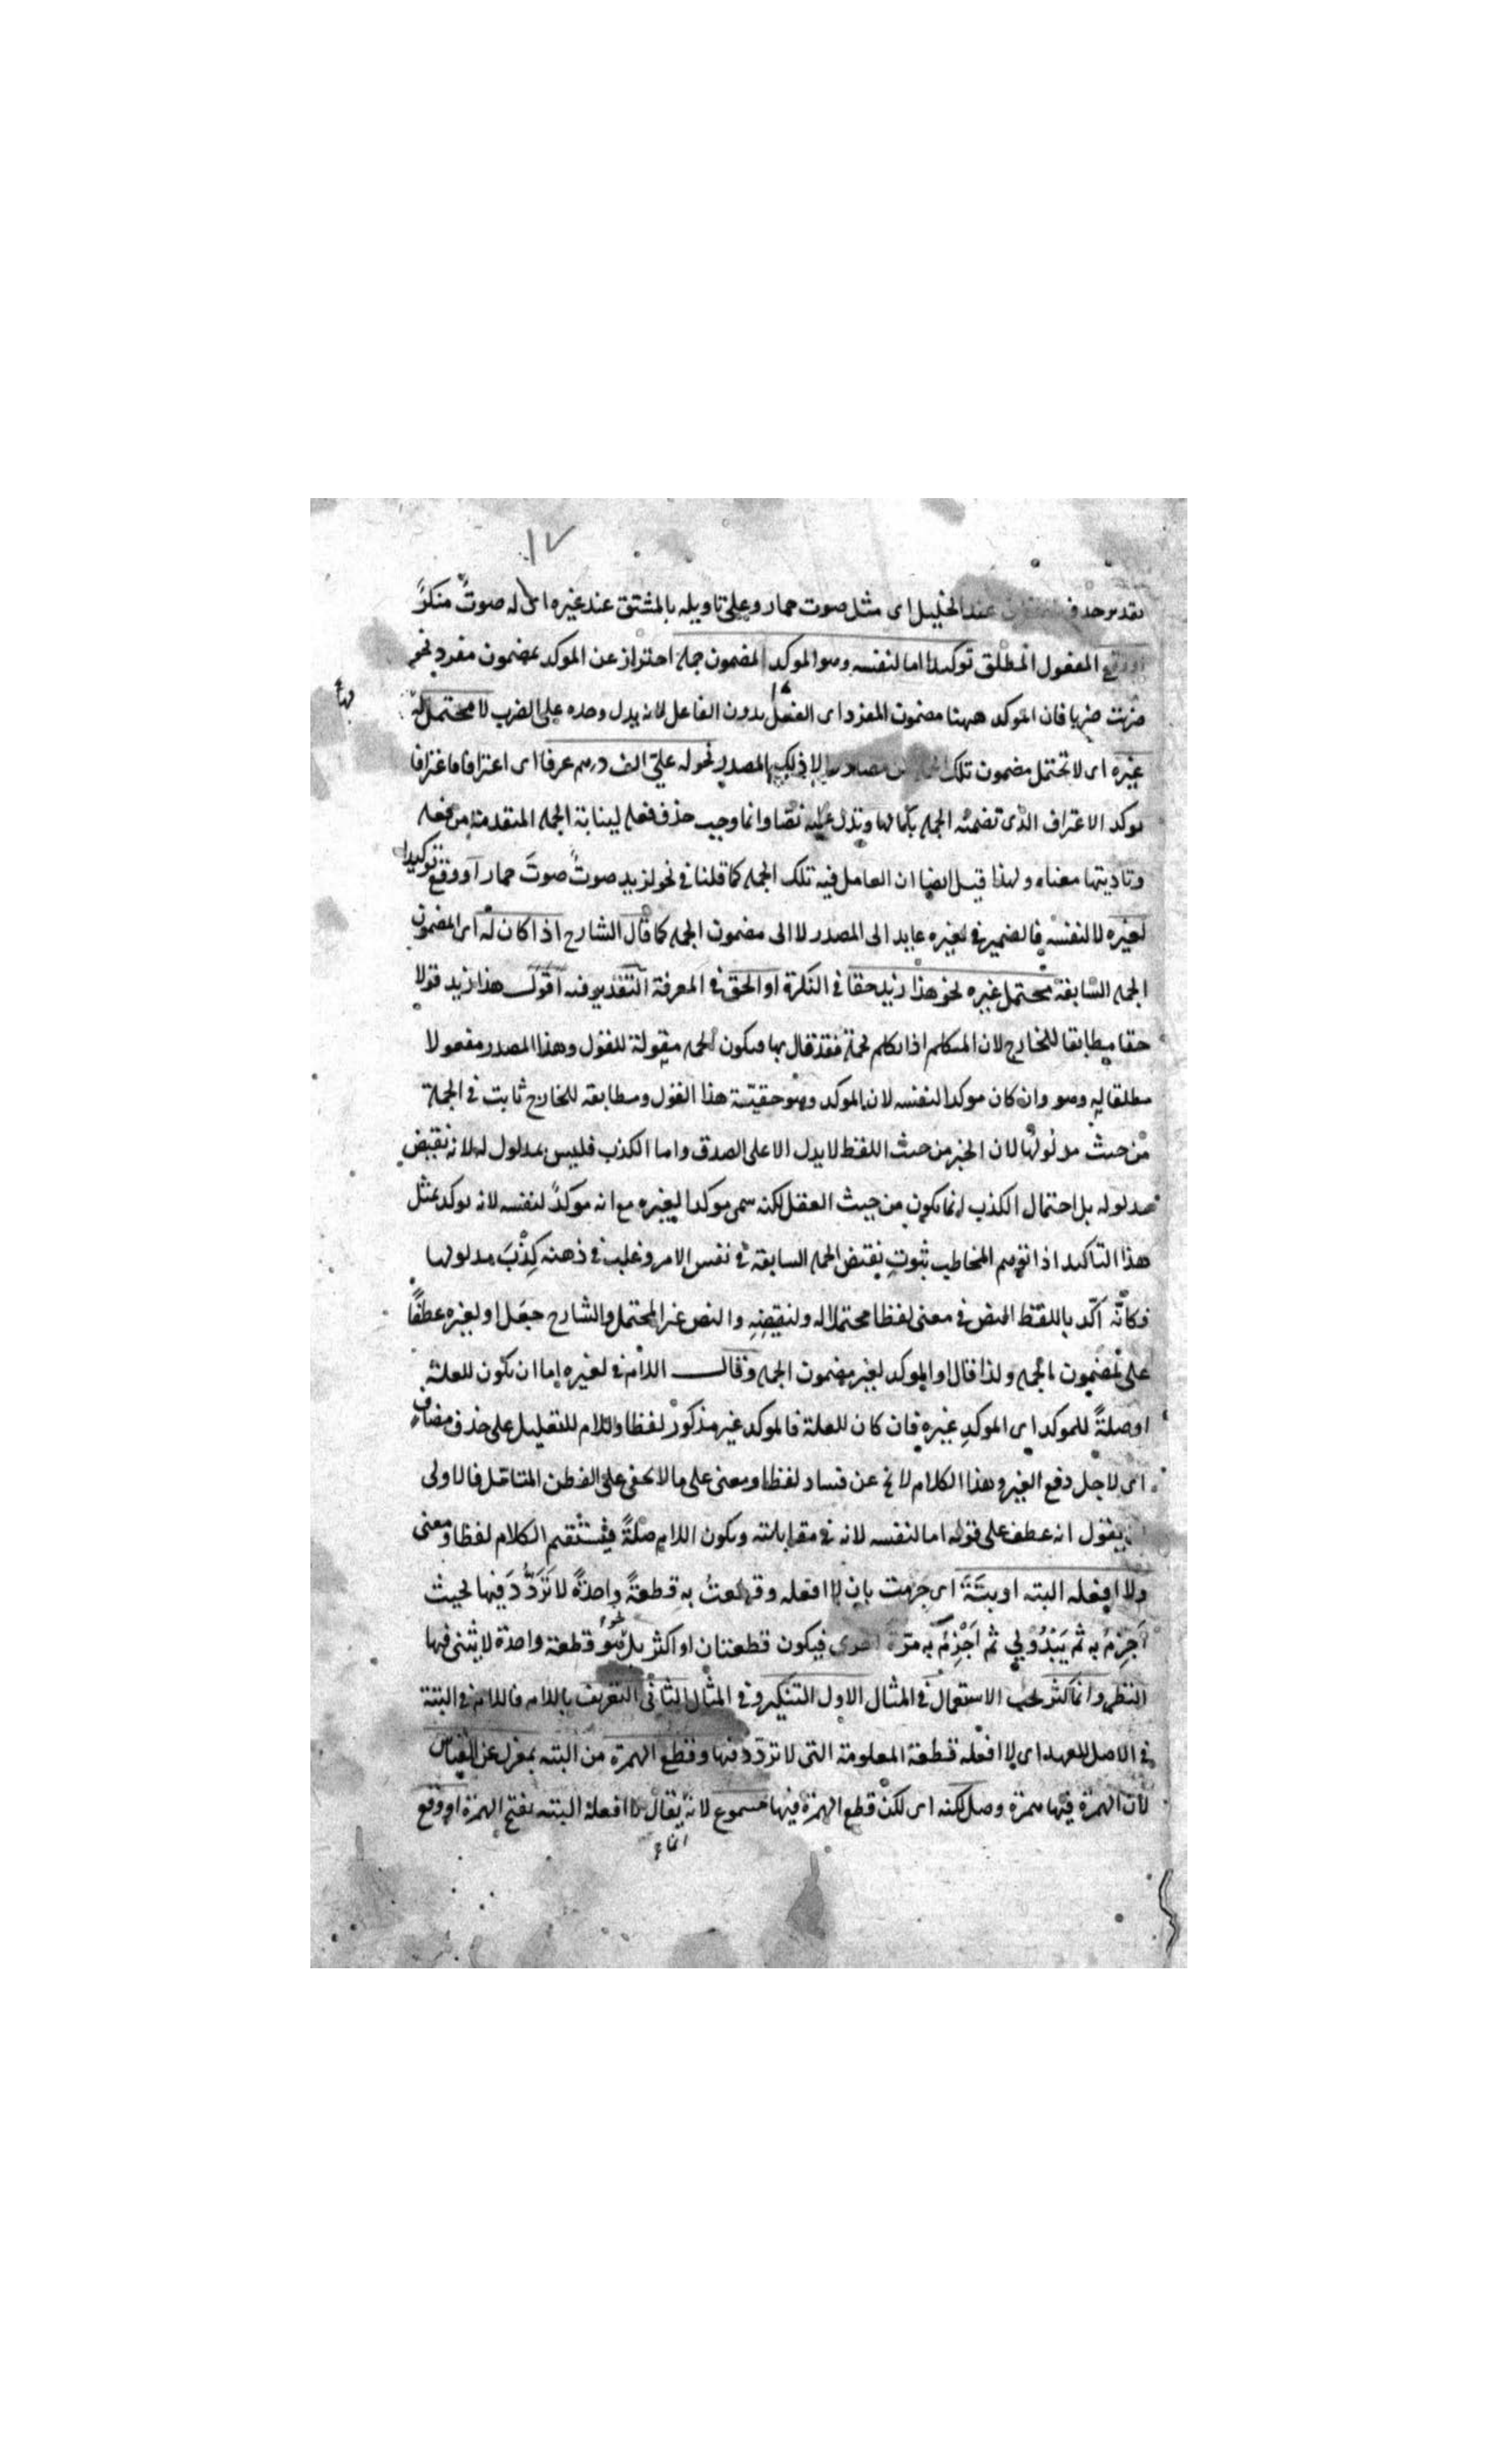 ١٧
بتقدير حذف عند الخليل اى مثل صوت حمار وعلى تاويله بالمشتق عند غيره اى له صوتٌ منكرً
او وقع المفعول المطلق توكيدا اما لنفسه وهو الموكد لمضمون جملة احتراز عن الموكد بمضمون مفرد نحو
ضربت ضربا فان الموكد ههنا مضمون المفرد اى الفعل بدون الفاعل لانه يدل وحده على الضرب لا محتمل لها
غيره اى لا تحتمل مضمون تلك الا ذلك المصدر نحو له علىّ الف درهم عرفا اى اعترافا فاعترافا
يوكد الاعتراف الذى تضمنه الجملة بكمالها وتدل عليه نصا وانما وجب حذف فعله لينابة الجملة المتقدمة من فعله
وتاديتها معناه ولهذا قيل ايضا ان العامل فيه تلك الجملة كما قلنا فى نحو لزيد صوتٌ صوتَ حمار او وقع توكيدا
لغيره لا لنفسه فالضمير فى لغيره عايد الى المصدر لا الى مضمون الجملة كما قال الشارح اذا كان له اى لمضمون
الجملة السابقة محتمل غيره نحو هذا زيد حقا فى النكرة او الحق فى المعرفة التقدير فيه اقول هذا زيد قولا
حقا مطابقا للخارج لان المتكلم اذا تكلم بجملة فقد قال بها فيكون الجملة مقولة للقول وهذا المصدر مفعولا
مطلقا له وهو وان كان موكدا لنفسه لان الموكد وهو حقيقة هذا القول ومطابقته للخارج ثابت فى الجملة
من حيث مدلولها لان الخبر من حيث اللفظ لا يدل الا على الصدق واما الكذب فليس بمدلول له لانه نقيض
مدلوله بل احتمال الكذب انما يكون من حيث العقل لكنه سمى موكدا لغيره مع انه موكدٌ لنفسه لانه يوكد بمثل
هذا التاكيد اذا توهم المخاطب ثبوت نقيض الجملة السابقة فى نفس الامر وغلب فى ذهنه كِذْبَ مدلولها
فكانّه اكّد باللفظ النص فى معنى لفظا محتملا له ولنقيضه والنص غير المحتمل والشارح جعل او لغيره عطفًا
على لمضمون الجملة ولذا قال او الموكد لغير مضمون الجملة وقال اللام فى لغيره اما ان يكون للعلة
او صلةً للموكد اى الموكدِ غيره فان كان للعلة فالموكد غير مذكور لفظا واللام للتعليل على حذف مضاف
اى لاجل دفع الغير وهذا الكلام لا يخ عن فساد لفظا ومعنى على ما لا يخفى على الفطن المتامل فالاولى
ان يقول انه عطف على قوله اما لنفسه لانه فى مقابلته ويكون اللام صلةً فيستقيم الكلام لفظا ومعنى
ولا افعله البتة او بتّةً اى جزمت بان لا افعله وقطعتُ به قطعةً واحدةً لا تَرَدُّدَ فيها بحيث
اَجزِمُ به ثم يَبْدُولى ثم اَجْزِمُ به مرّة اخرى فيكون قطعتان او اكثر بل هو قطعة واحدة لا يثنى فيها
النظر وانما كثر بحسب الاستعمال فى المثال الاول التنكير وفى المثال الثانى التعريف باللام فاللام فى البتة
فى الاصل للعهد اى لا افعله قطعة المعلومة التى لا تردّد فيها وقطع الهمزة من البتة بمعزل عن القياس
لان الهمزة فيها همزة وصل لكنه اى لكن قطع الهمزة فيها مسموع لانه يقال لا افعله البتة بفتح الهمزة او وقع